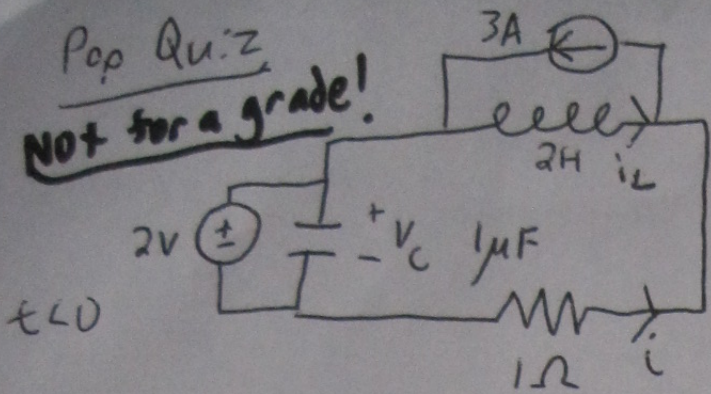 Pop Quiz
Not for a grade!
3A
2H iL
2V + - + Vc - 1μF
t<0
1Ω i